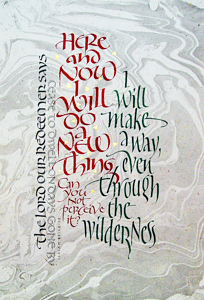 THE LORD OUR REDEEMER SAYS
CEASE TO DWELL ON DAYS GONE BY
Here
and
NOW
I
Will
DO
a
NEW
Thing
Can
you
Not
perceive
it?
I
will
make
a way,
even
through
the
wilderness